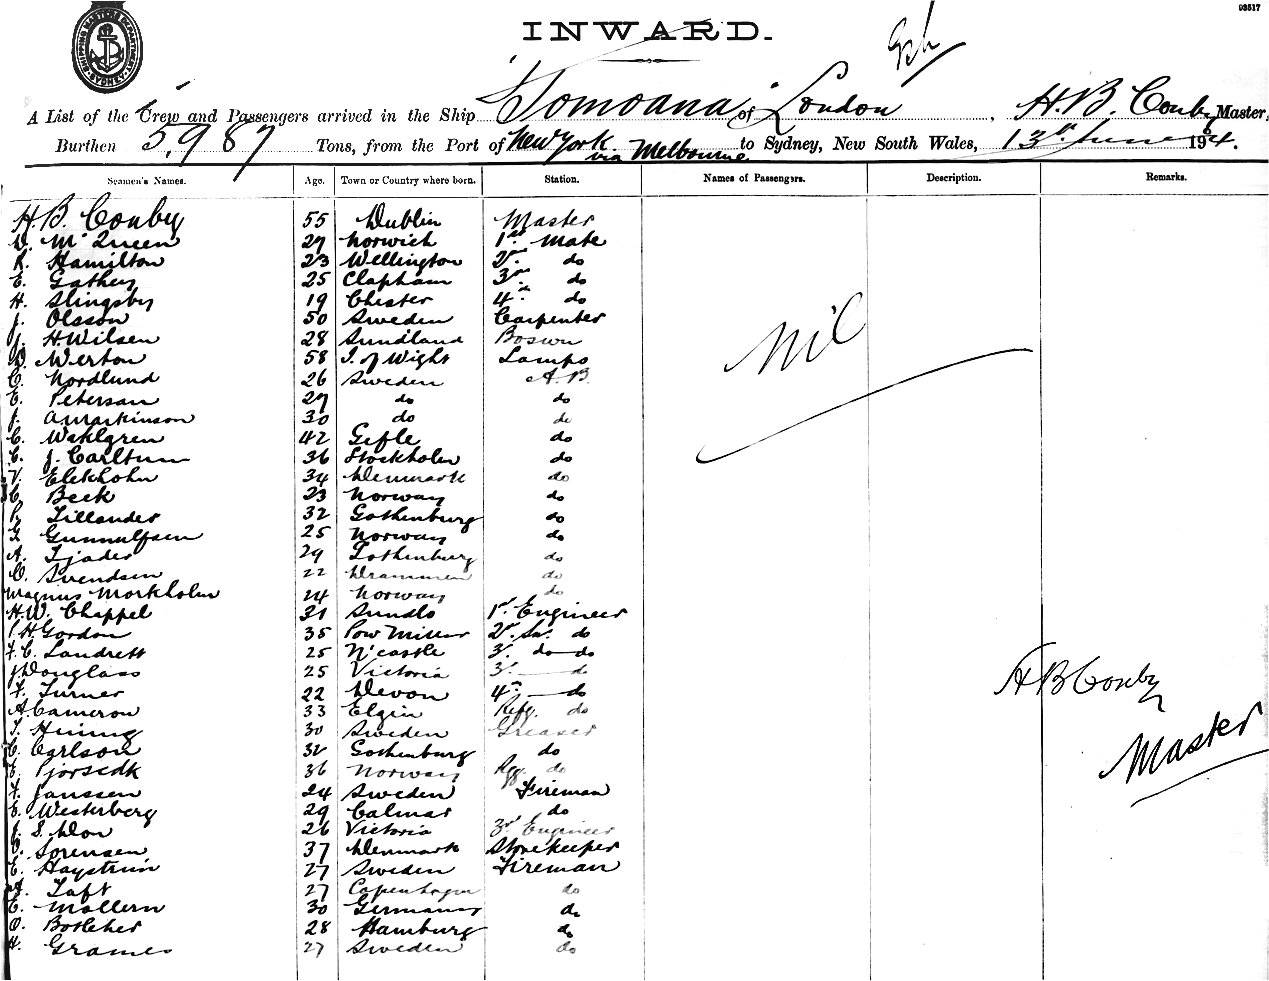 03517
SHIPPING MASTER'S DEPARTMENT SYDNEY
INWARD.
A List of the Crew and Passengers arrived in the Ship Tomoana of London, H.B. Conby Master,
Burthen 5,987 Tons, from the Port of New York via Melbourne to Sydney, New South Wales, 13th June 19
Seamen's Names. Age. Town or Country where born. Station. Names of Passengers. Description. Remarks.
H.B. Conby 55 Dublin Master
D. McQueen 29 Norwich 1st Mate
R. Hamilton 23 Wellington 2nd do
E. Gathey 25 Clapham 3rd do
H. Slingsby 19 Chester 4th do
J. Olsson 50 Sweden Carpenter
J. H. Wilsen 28 Sundland Bosun
D. Werton 58 I. of Wight Lamps
C. Nordlund 26 Sweden A.B.
E. Petersan 29 do do
J. 30 do do
C. Wahlgren 42 Gefle do
C. J. Carltun 36 Stockholm do
V. Elekholm 34 Denmark do
C. Beck 23 Norway do
P. Tillander 32 Gothenburg do
G. Gunnulfsen 25 Norway do
A. Tjader 29 Gothenburg do
O. Svendsen 22 Drammen do
Magnus Morkholm 24 Norway do
H.W. Chappel 31 Sundld 1st Engineer
P.H. Gordon 35 2nd do
F.C. Landrett 25 N'castle 3rd do do
J Douglass 25 Victoria 3rd do
F. Turner 22 Devon 4th do
A. Cameron 33 Elgin Refg. do
T. 30 Sweden Greaser
C. Carlson 32 Gothenburg do
36 Norway do
F. Janssen 24 Sweden Fireman
E. Westerberg 29 Calmar do
J. S. Don 26 Victoria 3rd Engineer
C. Sorensen 37 Denmark Storekeeper
E. Haystrim 27 Sweden Fireman
A. Taft 27 Copenhagen do
E. Mollern 30 Germany do
O. Bottcher 28 Hamburg do
H. Grames 27 Sweden do
Nil
H B Conby
Master